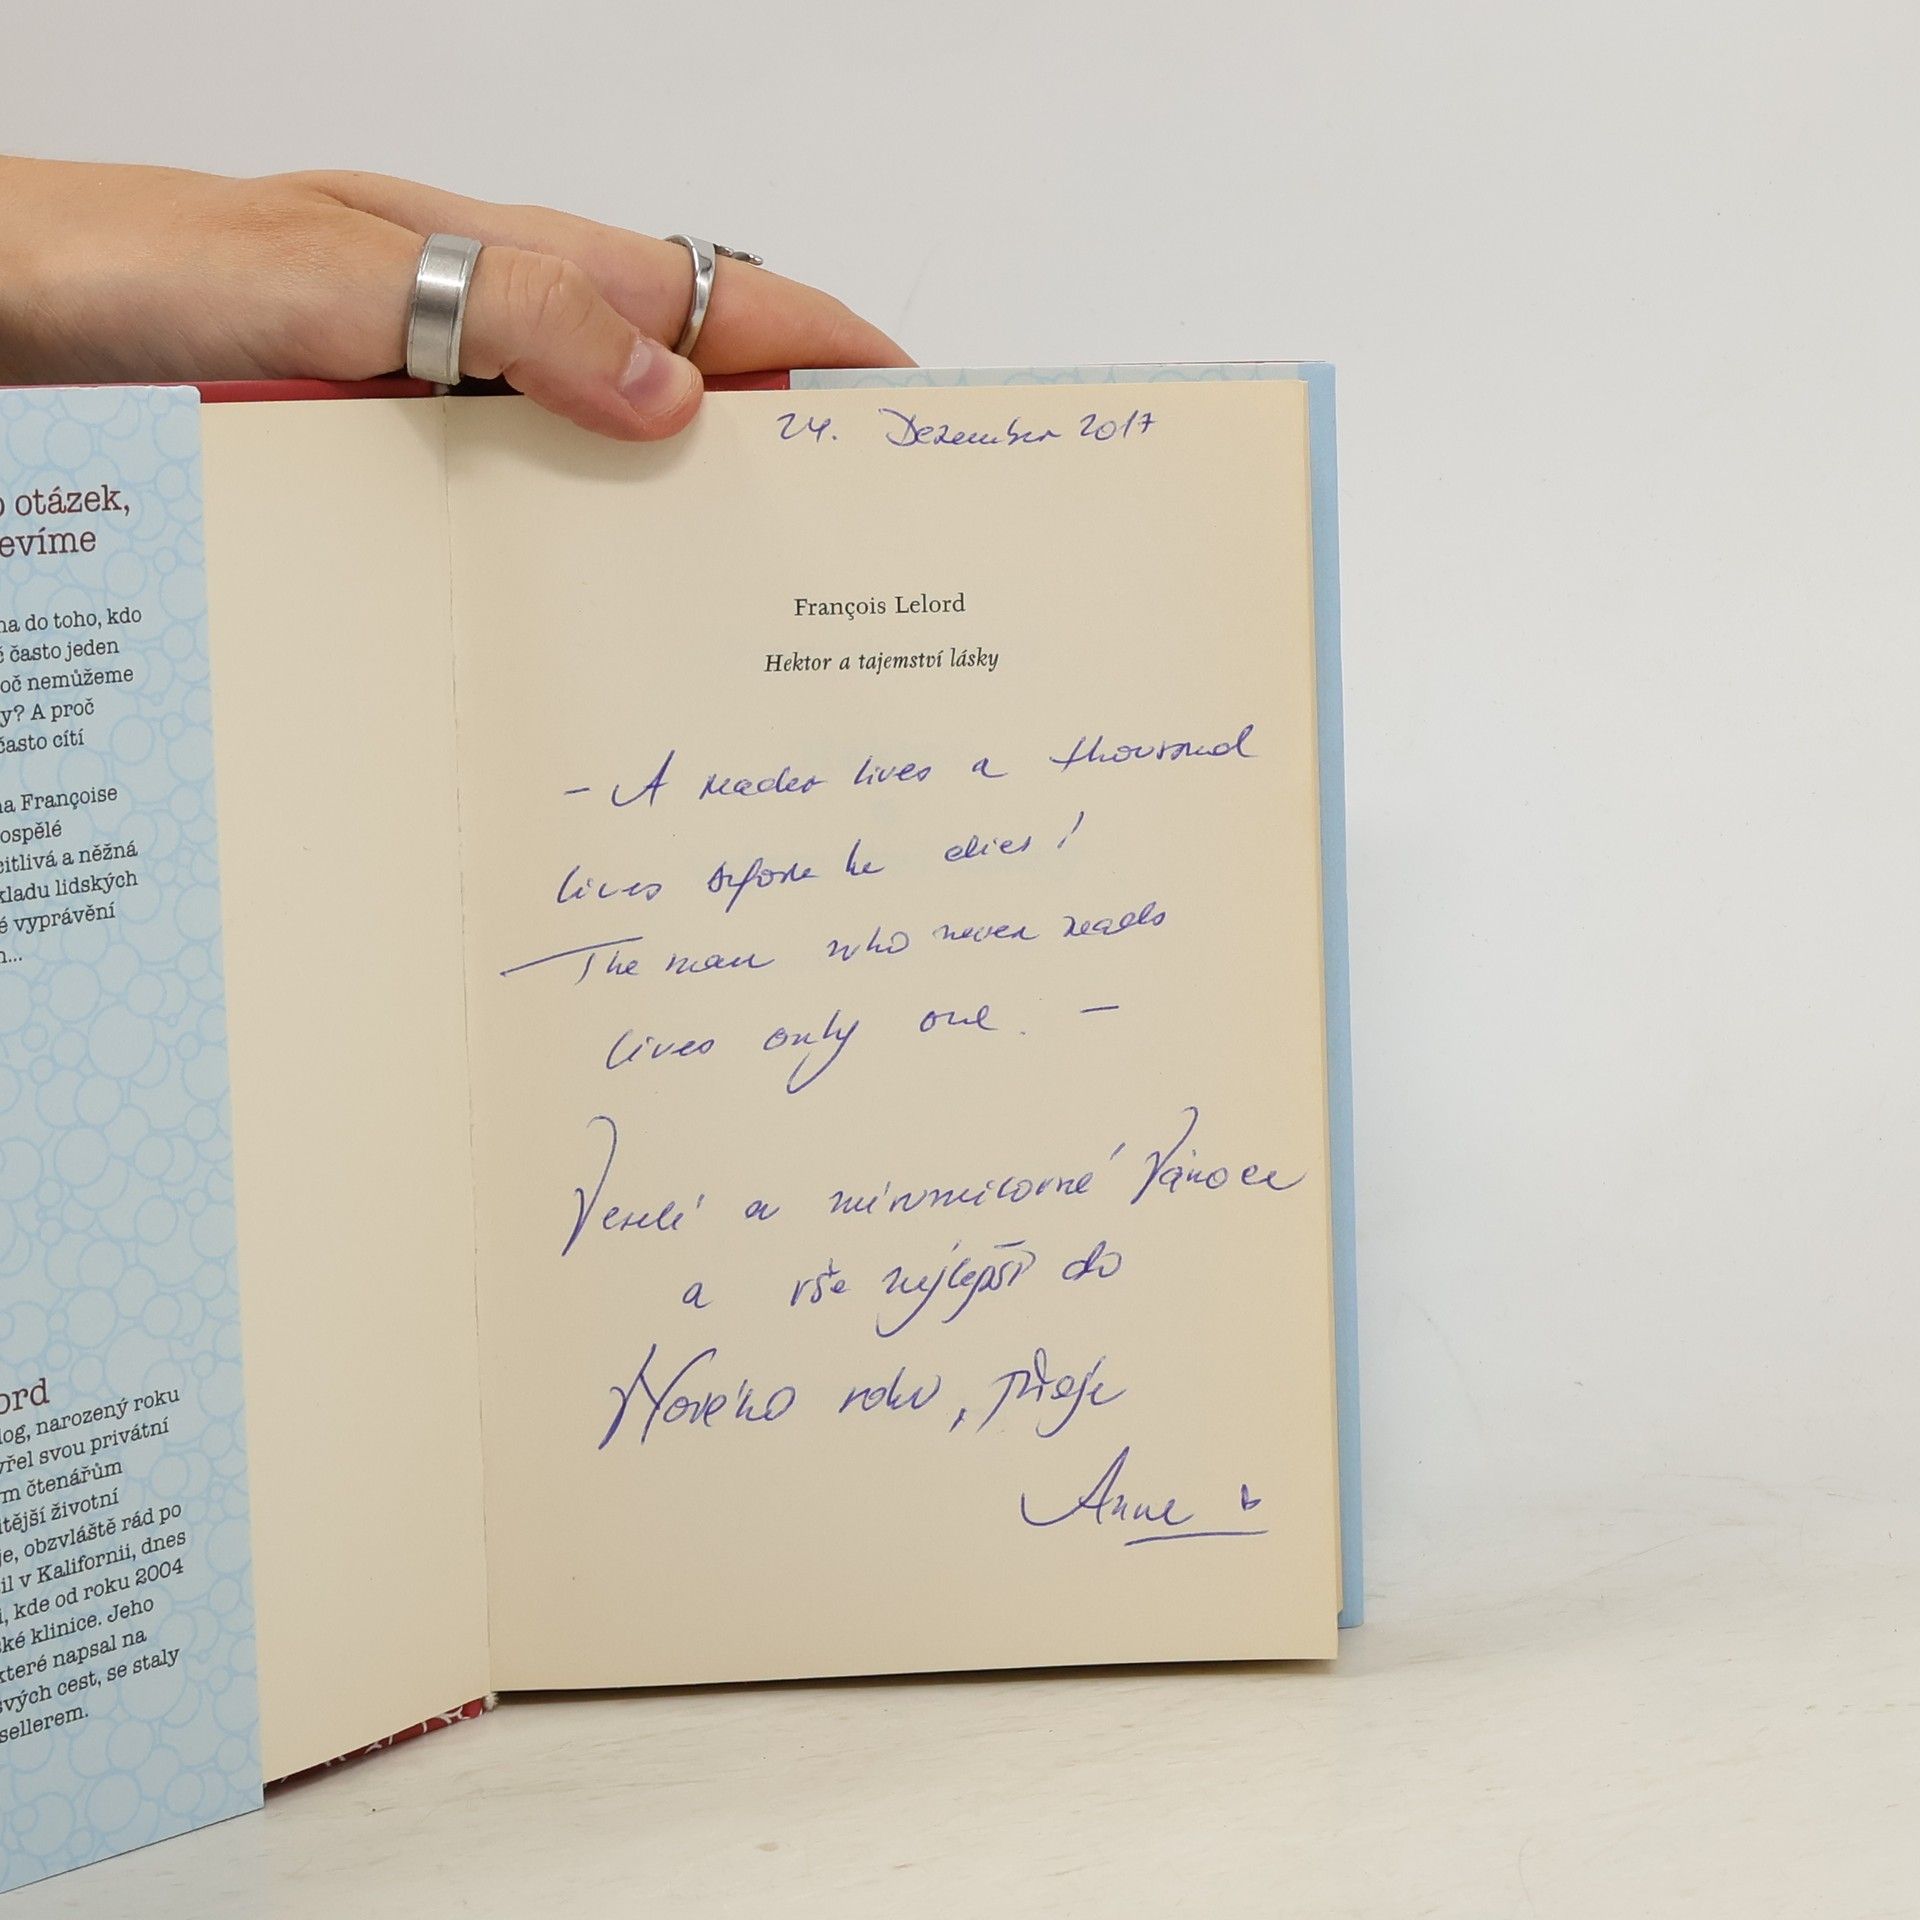 otázek,
evíme
na do toho, kdo
často jeden
oč nemůžeme
y? A proč
často cítí
na Françoise
ospělé
citlivá a něžná
kladu lidských
é vyprávění
n...
ord
log, narozený roku
vřel svou privátní
m čtenářům
itější životní
je, obzvláště rád po
il v Kalifornii, dnes
i, kde od roku 2004
ké klinice. Jeho
které napsal na
svých cest, se staly
sellerem.
24. Dezember 2017
François Lelord
Hektor a tajemství lásky
- A reader lives a thousand
lives before he dies!
The man who never reads
lives only one. -
Veselé a mírumilovné Vánoce
a vše nejlepší do
Nového roku, přeje
Anne